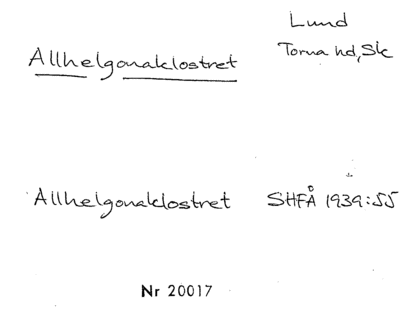 Lund
Allhelgonaklostret Torna hd, Sk
Allhelgonaklostret SHFÅ 1939:55
Nr 20017